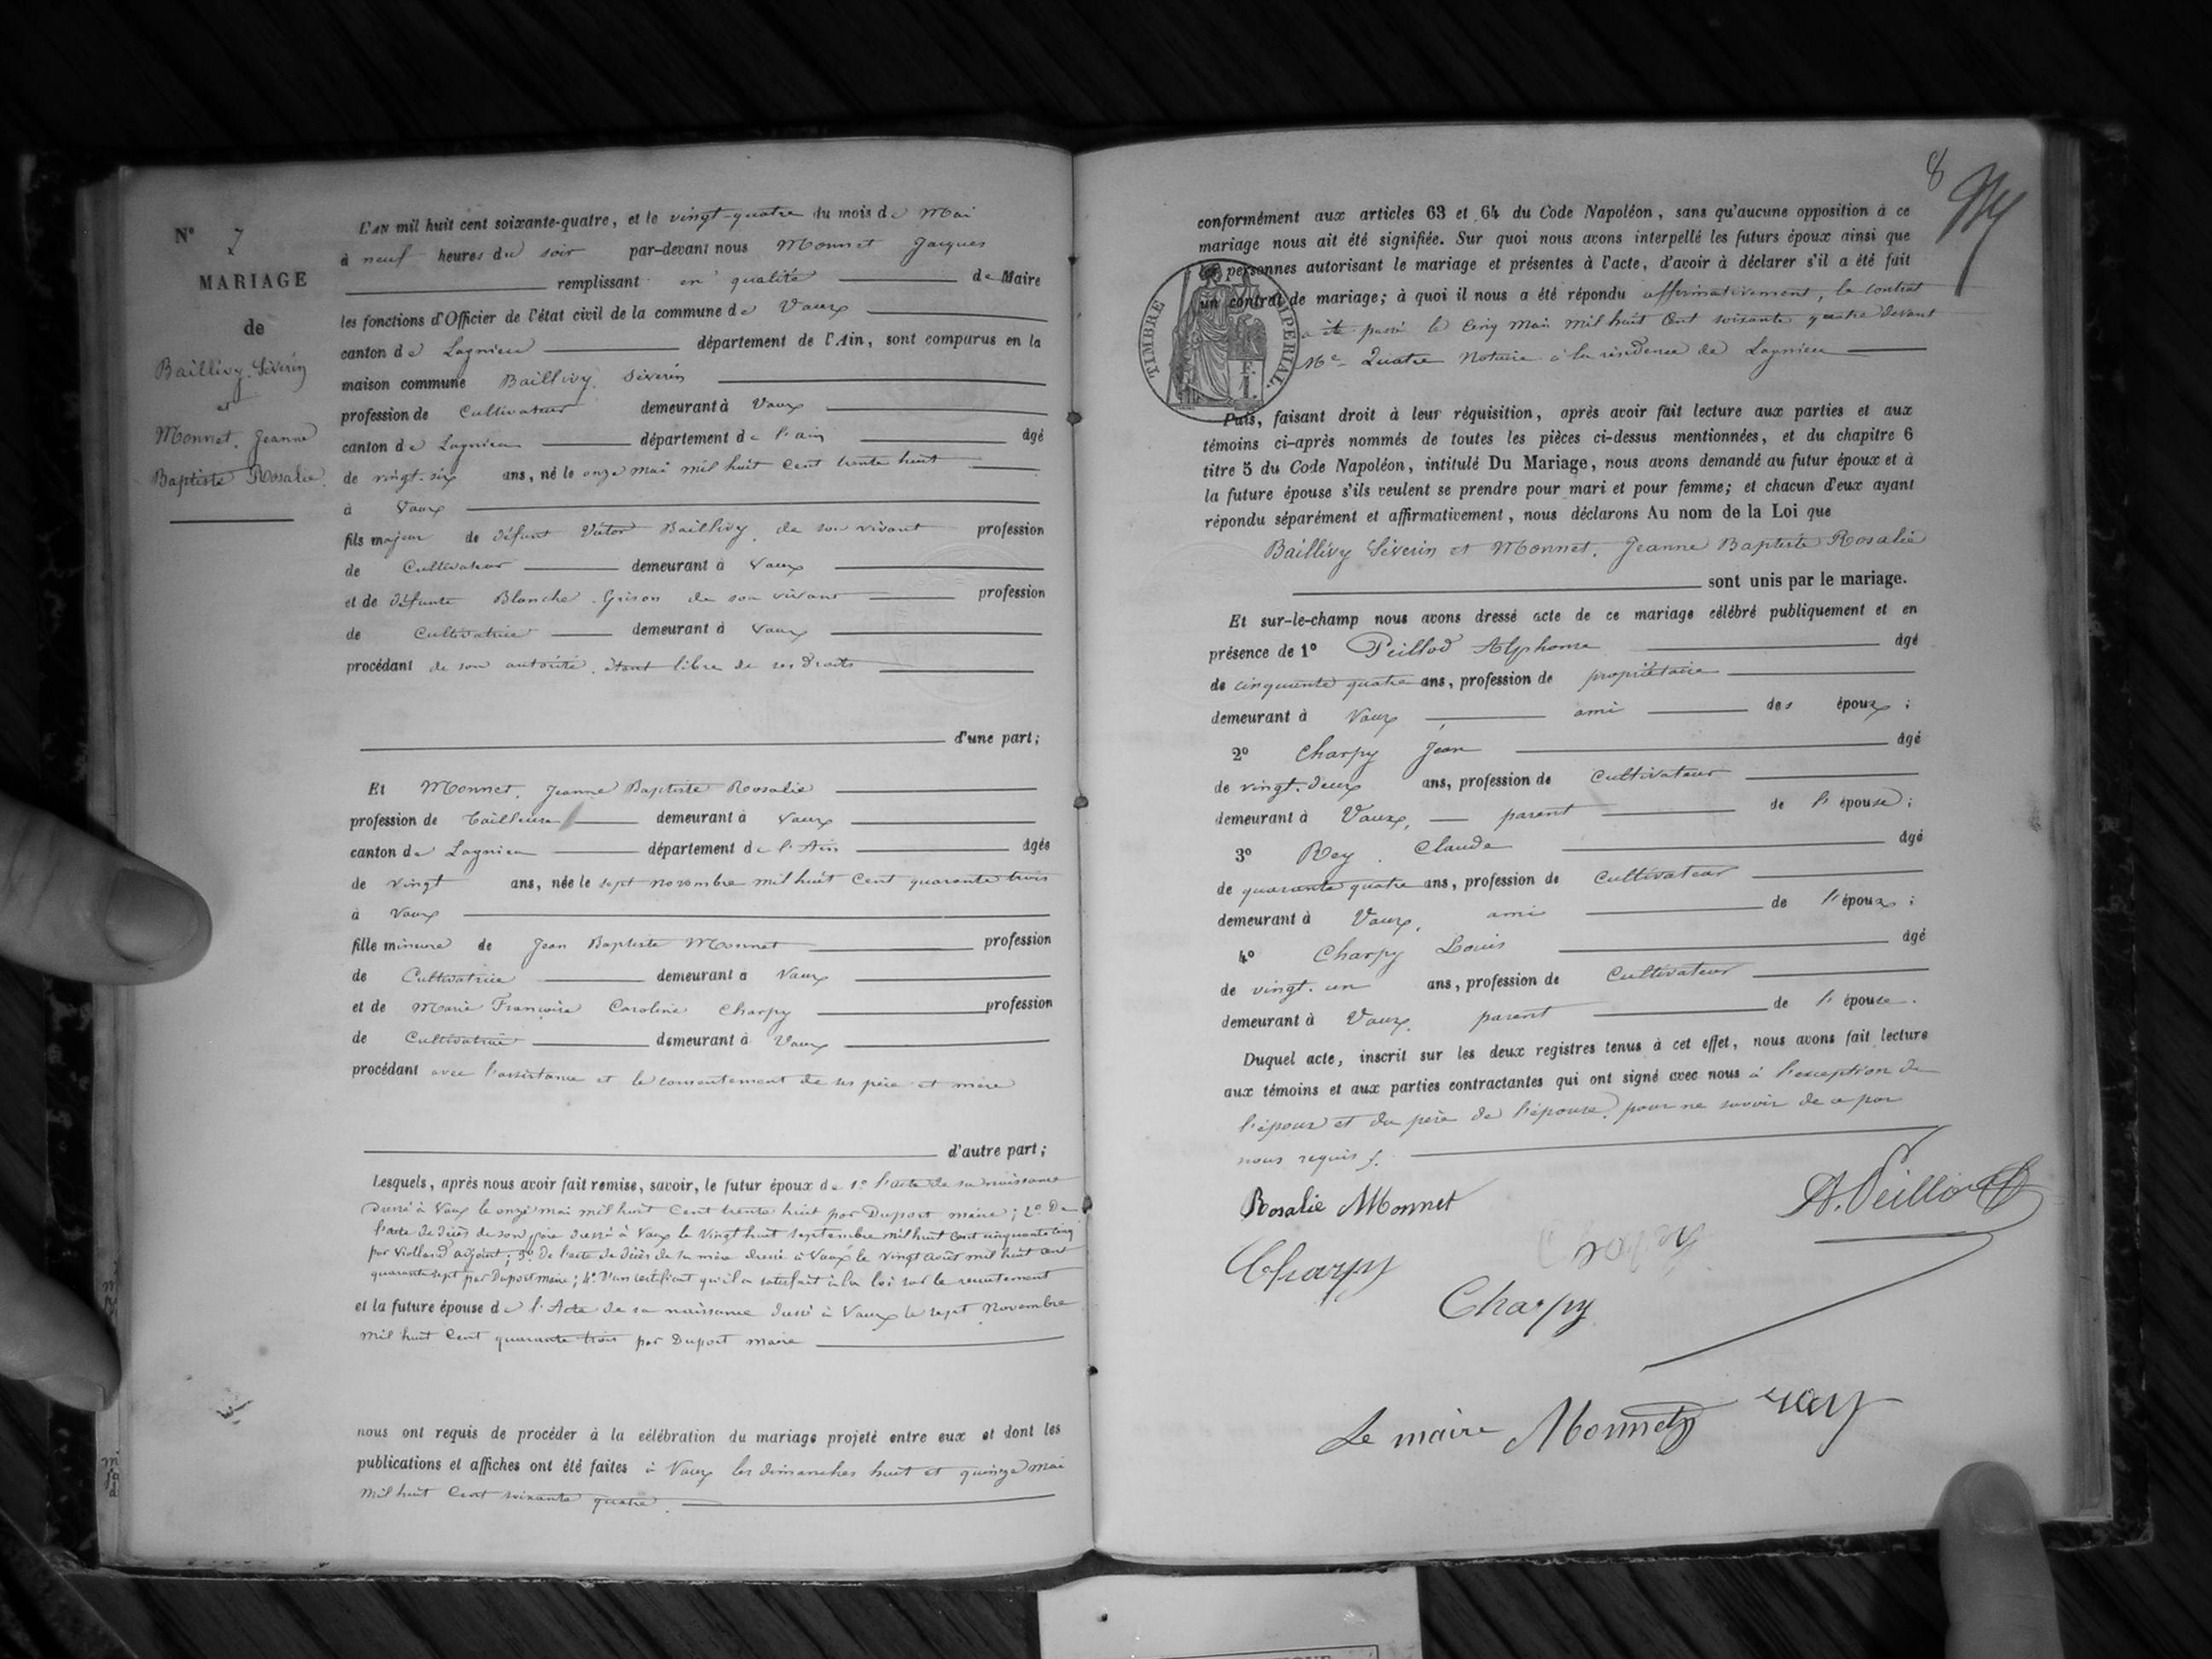 N° 7
MARIAGE
de
Baillivy. Séverin
et
Monnet. Jeanne
Baptiste Rosalie.
L'AN mil huit cent soixante-quatre, et le vingt-quatre du mois de Mai
à neuf heures du soir par-devant nous Monnet Jacques
remplissant en qualité de Maire
les fonctions d'Officier de l'état civil de la commune de Vaux
canton de Lagnieu département de l'Ain, sont comparus en la
maison commune Baillivy. Séverin
profession de Cultivateur demeurant à Vaux
canton de Lagnieu département de l'ain âgé
de vingt-six ans, né le onze mai mil huit Cent trente huit
à Vaux
fils majeur de défunt Victor Baillivy, de son vivant profession
de Cultivateur demeurant à Vaux
et de défunte Blanche Grison de son vivant profession
de Cultivatrice demeurant à Vaux
procédant de son autorité, étant libre de ses droits
d'une part;
Et Monnet, Jeanne Baptiste Rosalie
profession de tailleuse demeurant à Vaux
canton de Lagnieu département de l'Ain âgée
de vingt ans, née le sept novembre mil huit Cent quarante trois
à Vaux
fille mineure de Jean Baptiste Monnet profession
de Cultivatrice demeurant à Vaux
et de Marie Françoise Caroline Charpy profession
de Cultivatrice demeurant à Vaux
procédant avec l'assistance et le consentement de ses père et mère
d'autre part;
Lesquels, après nous avoir fait remise, savoir, le futur époux de 1° l'acte de sa naissance
dressé à Vaux le onze mai mil huit Cent trente huit par Duport maire; 2° De
l'acte de décès de son père dressé à Vaux le Vingt huit septembre mil huit Cent cinquante cinq
par Violland adjoint; 3° De l'acte de décès de sa mère dressé à Vaux le vingt août mil huit cent
quarante sept par Duport maire; 4° D'un certificat qu'il a satisfait à la loi sur le recrutement
et la future épouse de l'Acte de sa naissance dressé à Vaux le sept Novembre
mil huit Cent quarante trois par Duport maire
nous ont requis de procéder à la célébration du mariage projeté entre eux et dont les
publications et affiches ont été faites à Vaux les dimanches huit et quinze mai
mil huit Cent soixante quatre.
8
conformément aux articles 63 et 64 du Code Napoléon, sans qu'aucune opposition à ce
mariage nous ait été signifiée. Sur quoi nous avons interpellé les futurs époux ainsi que
les personnes autorisant le mariage et présentes à l'acte, d'avoir à déclarer s'il a été fait
un contrat de mariage; à quoi il nous a été répondu affirmativement, le contrat
a été passé le cinq Mai mil huit Cent soixante quatre devant
Me Quatre Notaire à la résidence de Lagnieu
TIMBRE IMPERIAL
1 F.
Puis, faisant droit à leur réquisition, après avoir fait lecture aux parties et aux
témoins ci-après nommés de toutes les pièces ci-dessus mentionnées, et du chapitre 6
titre 5 du Code Napoléon, intitulé Du Mariage, nous avons demandé au futur époux et à
la future épouse s'ils veulent se prendre pour mari et pour femme; et chacun d'eux ayant
répondu séparément et affirmativement, nous déclarons Au nom de la Loi que
Baillivy Séverin et Monnet. Jeanne Baptiste Rosalie
sont unis par le mariage.
Et sur-le-champ nous avons dressé acte de ce mariage célébré publiquement et en
présence de 1° Peillod Alphonse âgé
de cinquante quatre ans, profession de propriétaire
demeurant à Vaux ami des époux;
2° Charpy Jean âgé
de vingt-deux ans, profession de Cultivateur
demeurant à Vaux, parent de l'épouse;
3° Rey. Claude âgé
de quarante quatre ans, profession de Cultivateur
demeurant à Vaux, ami de l'époux;
4° Charpy Louis âgé
de vingt-un ans, profession de Cultivateur
demeurant à Vaux, parent de l'épouse.
Duquel acte, inscrit sur les deux registres tenus à cet effet, nous avons fait lecture
aux témoins et aux parties contractantes qui ont signé avec nous à l'exception de
l'époux et du père de l'épouse, pour ne savoir de ce par
nous requis
Rosalie Monnet
A. Peillod
Charpy
Charpy
Le maire Monnet